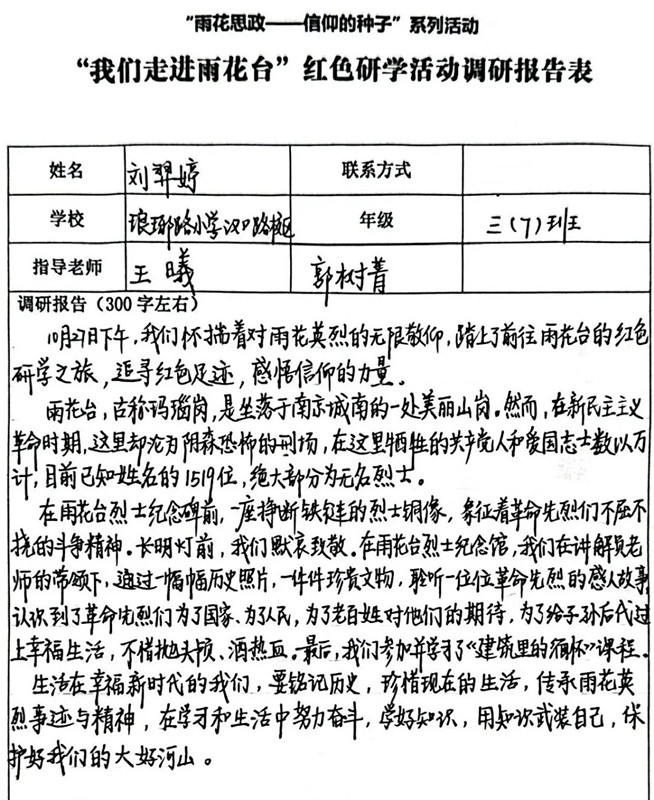 “雨花思政——信仰的种子”系列活动
“我们走进雨花台”红色研学活动调研报告表
姓名 刘羿婷 联系方式
学校 琅琊路小学汉口路校区 年级 三(7)班
指导老师 王曦 郭树菁
调研报告（300字左右）
10月27日下午，我们怀揣着对雨花英烈的无限敬仰，踏上了前往雨花台的红色
研学之旅，追寻红色足迹，感悟信仰的力量。
雨花台，古称玛瑙岗，是坐落于南京城南的一处美丽山岗。然而，在新民主主义
革命时期，这里却沦为阴森恐怖的刑场，在这里牺牲的共产党人和爱国志士数以万
计，目前已知姓名的1519位，绝大部分为无名烈士。
在雨花台烈士纪念碑前，一座挣断铁链的烈士铜像，象征着革命先烈们不屈不
挠的斗争精神。长明灯前，我们默哀致敬。在雨花台烈士纪念馆，我们在讲解员老
师的带领下，通过一幅幅历史照片，一件件珍贵文物，聆听一位位革命先烈的感人故事，
认识到了革命先烈们为了国家、为了人民，为了老百姓对他们的期待，为了给子孙后代过
上幸福生活，不惜抛头颅、洒热血。最后，我们参加并学习了《建筑里的缅怀》课程。
生活在幸福新时代的我们，要铭记历史，珍惜现在的生活，传承雨花英
烈事迹与精神，在学习和生活中努力奋斗，学好知识，用知识武装自己，保
护好我们的大好河山。